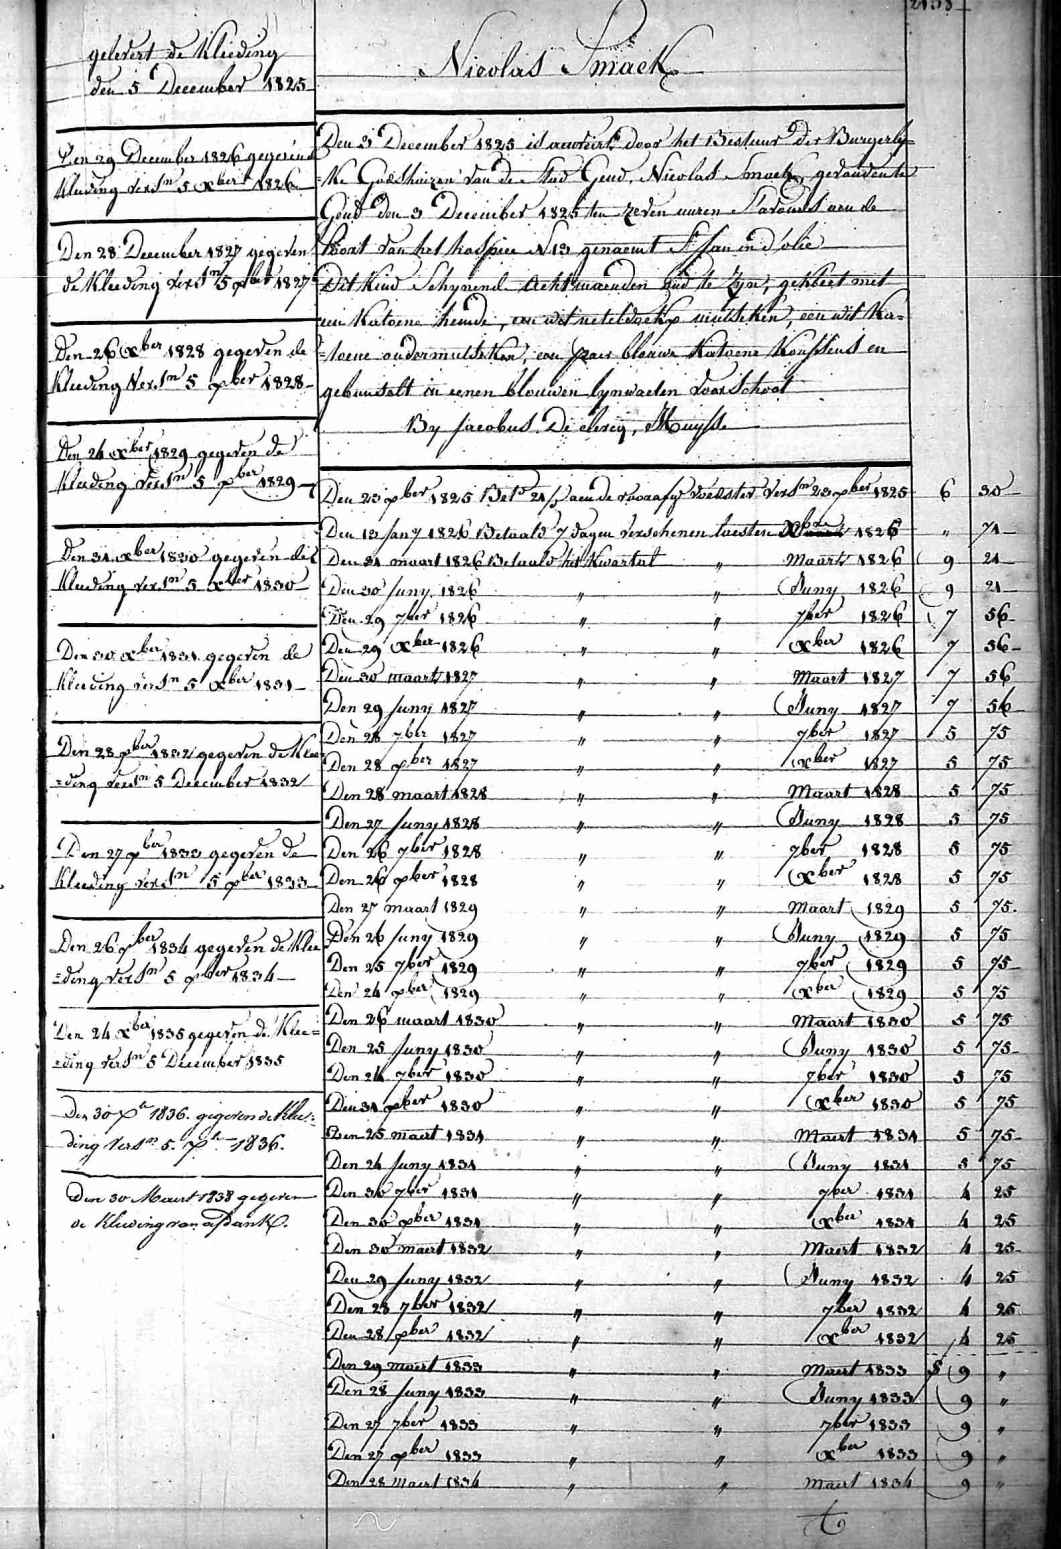 gelevert de Kleeding
den 5 December 1825
Den 29 December 1826 gegeven de
Kleeding versn 5 Xber 1826
Den 28 December 1827 gegeven
de Kleeding versn 5 Xber 1827
Den 26 Xber 1828 gegeven de
Kleeding Versn 5 Xber 1828
Den 24 Xber 1829 gegeven de
Kleeding versn 5 Xber 1829
Den 31 Xber 1830 gegeven de
Kleeding versn 5 Xber 1830
Den 30 Xber 1831 gegeven de
Kleeding versn 5 Xber 1831
Den 28 Xber 1832 gegeven de Klee
=ding versn 5 December 1832
Den 27 Xber 1833 gegeven de
Kleeding versn 5 Xber 1833
Den 26 Xber 1834 gegeven de Klee
=ding versn 5 Xber 1834
Den 24 Xber 1835 gegeven de Klee=
=ding versn 5 December 1835
Den 30 Xr 1836. gegeven de Klee=
ding versn 5. Xr 1836.
Den 30 Maert 1838 gegeven
de Kleeding van
Nicolas Smaek
Den 3 December 1825 is door het Bestuur der Burgerly=
=ke Godshuizen van de Stad Gend, Nicolas Smaek, gevonden te
Gend den 3 December 1825 ten zeven uuren s'avonds aen de
Poort van het hospice N 13 genaemt St Jan in d'olie
Dit Kind Schynende Acht maenden oud te Zyn, gekleet met
een Katoene hemde, een wit neteldoekx mutseken, een wit Ka=
=toene ondermutseken, een paer blauwe Katoene Koussens en
gebunselt in eenen blouwen lynwaeten voorschoot
By Jacobus De clercq, Muysse
Den 23 Xber 1825 Betd 21/ aen de voedster versn 23 Xber 1825 6 30
Den 13 Jany 1826 Betaald 7 dagen verschenen laesten Xber 1826 " 71
Den 31 maart 1826 Betaald het Kwartal " Maart 1826 9 21
Den 30 Juny 1826 " " Juny 1826 9 21
Den 29 7ber 1826 " " 7ber 1826 7 56
Den 29 Xber 1826 " " Xber 1826 7 56
Den 30 maart 1827 " " Maart 1827 7 56
Den 29 Juny 1827 " " Juny 1827 7 56
Den 28 7ber 1827 " " 7ber 1827 5 75
Den 28 Xber 1827 " " Xber 1827 5 75
Den 28 maart 1828 " " Maart 1828 5 75
Den 27 Juny 1828 " " Juny 1828 5 75
Den 26 7ber 1828 " " 7ber 1828 5 75
Den 26 Xber 1828 " " Xber 1828 5 75
Den 27 maart 1829 " " Maart 1829 5 75.
Den 26 Juny 1829 " " Juny 1829 5 75
Den 25 7ber 1829 " " 7ber 1829 5 75
Den 24 Xber 1829 " " Xber 1829 5 75
Den 26 maart 1830 " " Maart 1830 5 75
Den 25 Juny 1830 " " Juny 1830 5 75
Den 24 7ber 1830 " " 7ber 1830 5 75
Den 31 Xber 1830 " " Xber 1830 5 75
Den 25 maert 1831 " " Maert 1831 5 75
Den 24 Juny 1831 " " Juny 1831 5 75
Den 30 7ber 1831 " " 7ber 1831 4 25
Den 30 Xber 1831 " " Xber 1831 4 25
Den 30 maert 1832 " " Maert 1832 4 25
Den 29 Juny 1832 " " Juny 1832 4 25
Den 28 7ber 1832 " " 7ber 1832 4 25
Den 28 Xber 1832 " " Xber 1832 4 25
Den 29 maert 1833 " " Maert 1833 9 "
Den 28 Juny 1833 " " Juny 1833 9 "
Den 27 7ber 1833 " " 7ber 1833 9 "
Den 27 Xber 1833 " " Xber 1833 9 "
Den 28 maert 1834 " " Maert 1834 9 "